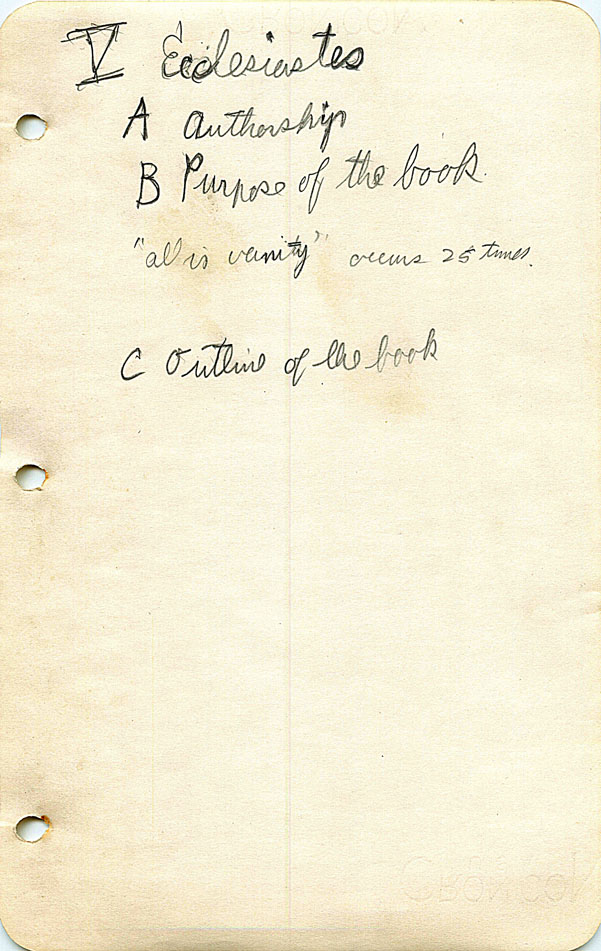 V Ecclesiastes
A Authorship
B Purpose of the book.
"all is vanity" occurs 25 times.
C Outline of the book